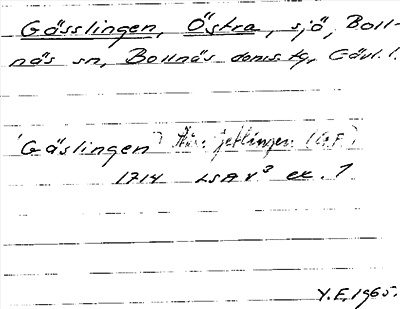 Gässlingen, Östra, sjö, Boll-
näs sn, Bollnäs doms.tg, Gävl.l.
'Gäslingen'
1714 LSA V³ ex. 1
Y.E. 1965.